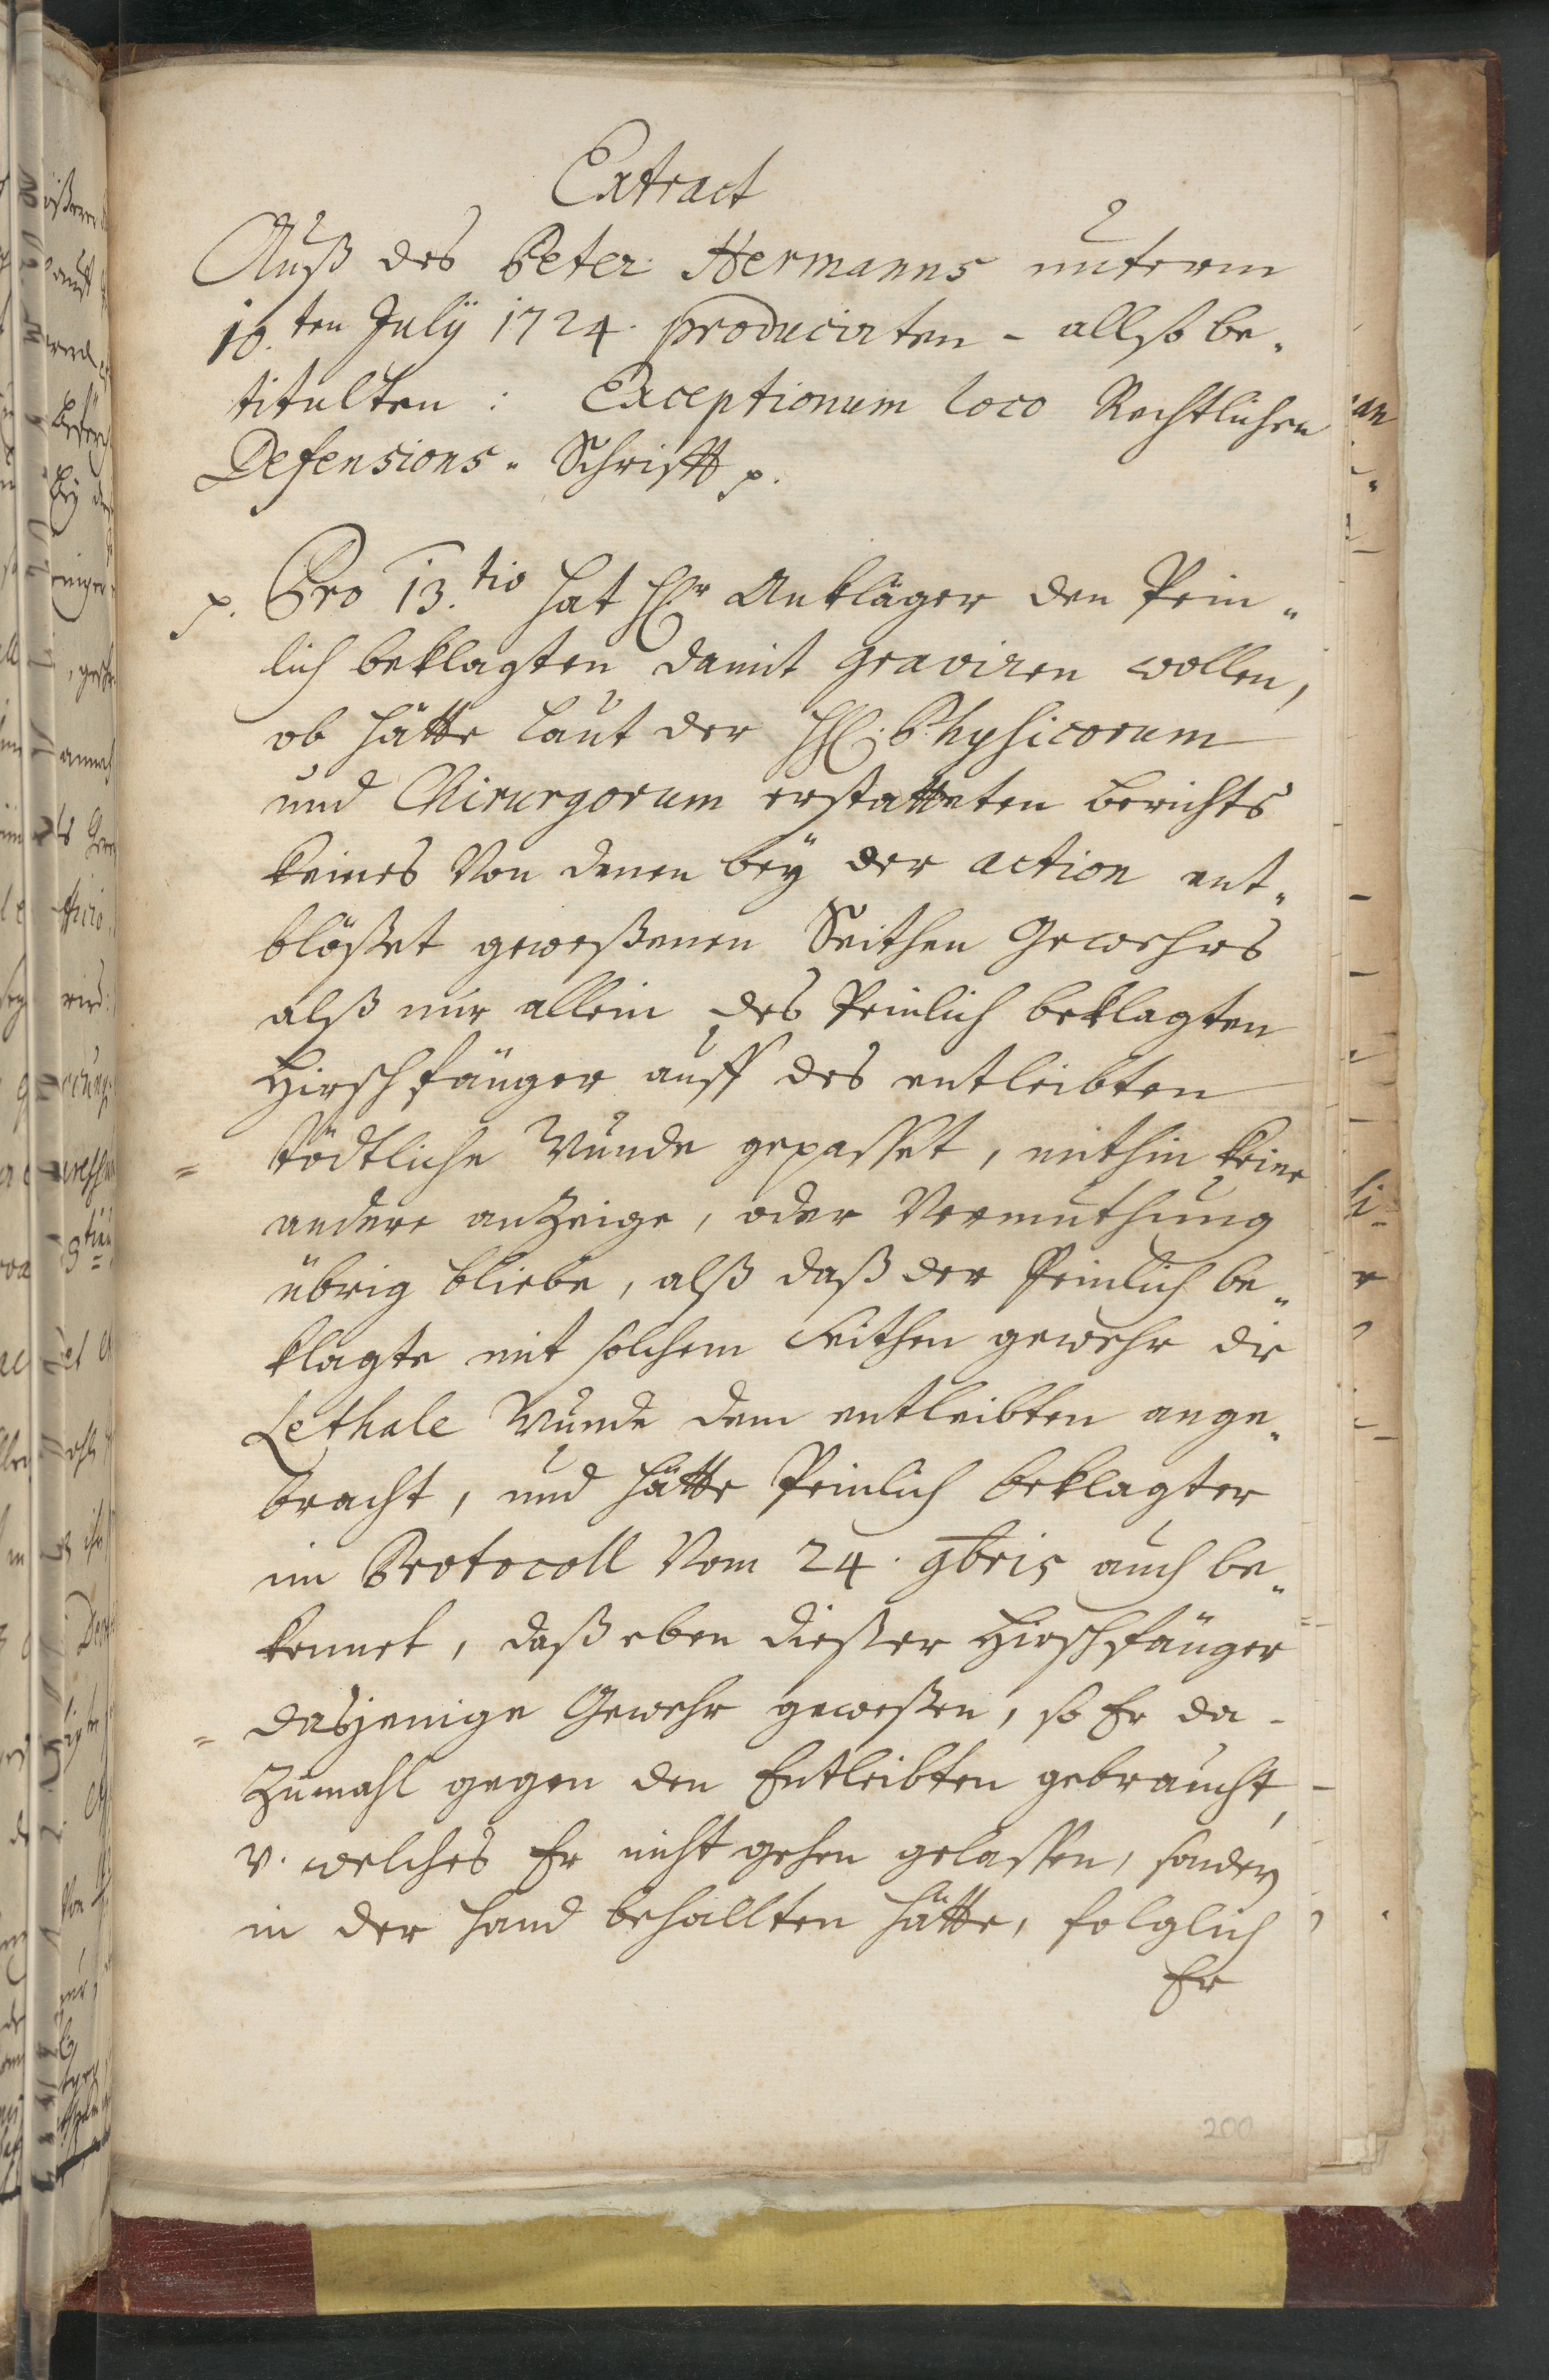 Extract
Auß des Peter Hermanns unterm
10.ten Julÿ 1724. producirten - allso be„
titulten : Exceptionum loco Rechtlichen
Defensions„ Schrifft p.
p. Pro 13.tio hat H.r Ankläger den Pein„
lich beklagten damit graviren wollen,
ob hätte laut der HH. Physicorum
und Chirurgorum erstatteten berichts
keines Von denen beÿ der action ent„
blößet geweßenen Seithen Gewehrs
alß nur allein des Peinlich beklagten
Hirschfänger auff des entleibten
tödtliche Wunde gepasset, mithin keine
andere anzeige, oder Vermuthung
übrig bliebe, alß daß der Peinlich be„
klagte mit solchem Seithen gewehr die
Lethale Wunde dem entleibten ange„
bracht, und hätte Peinlich beklagter
im Protocoll Vom 24. 9bris auch be„
kennet, daß eben dießer Hirschfänger
dasjenige Gewehr geweßen, so Er da-
zumahl gegen den Entleibten gebraucht,
v. welches Er nicht gehen gelassen, sondern
in der Hand behallten hätte, folglich
Er
200